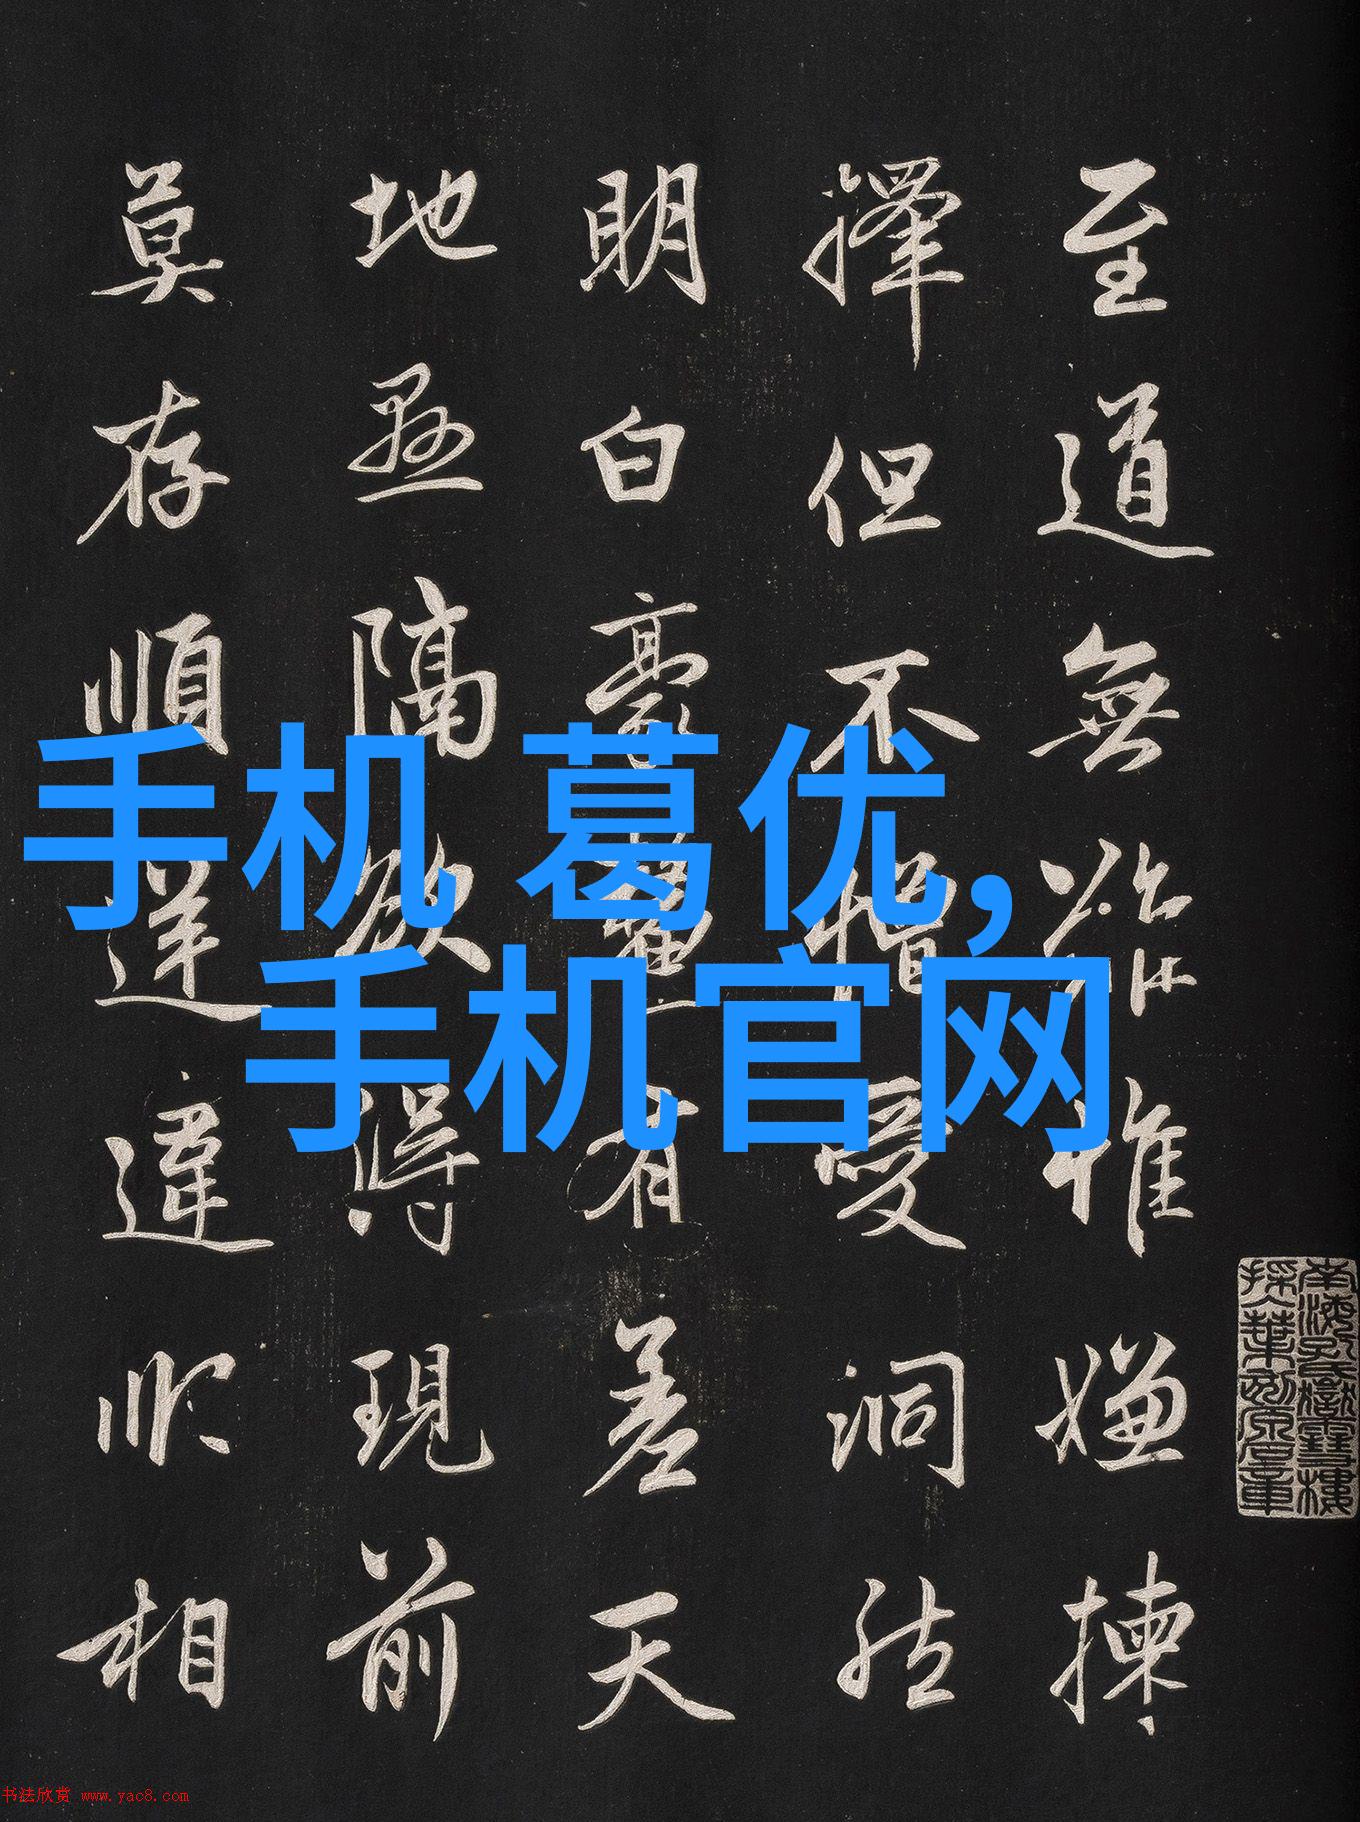 至道無難惟嫌揀
擇但不憎愛洞然
明白毫釐有差天
地懸隔欲得現前
莫存順逆違順相
手机 葛优,
手机官网
书法欣赏 www.yac8.com